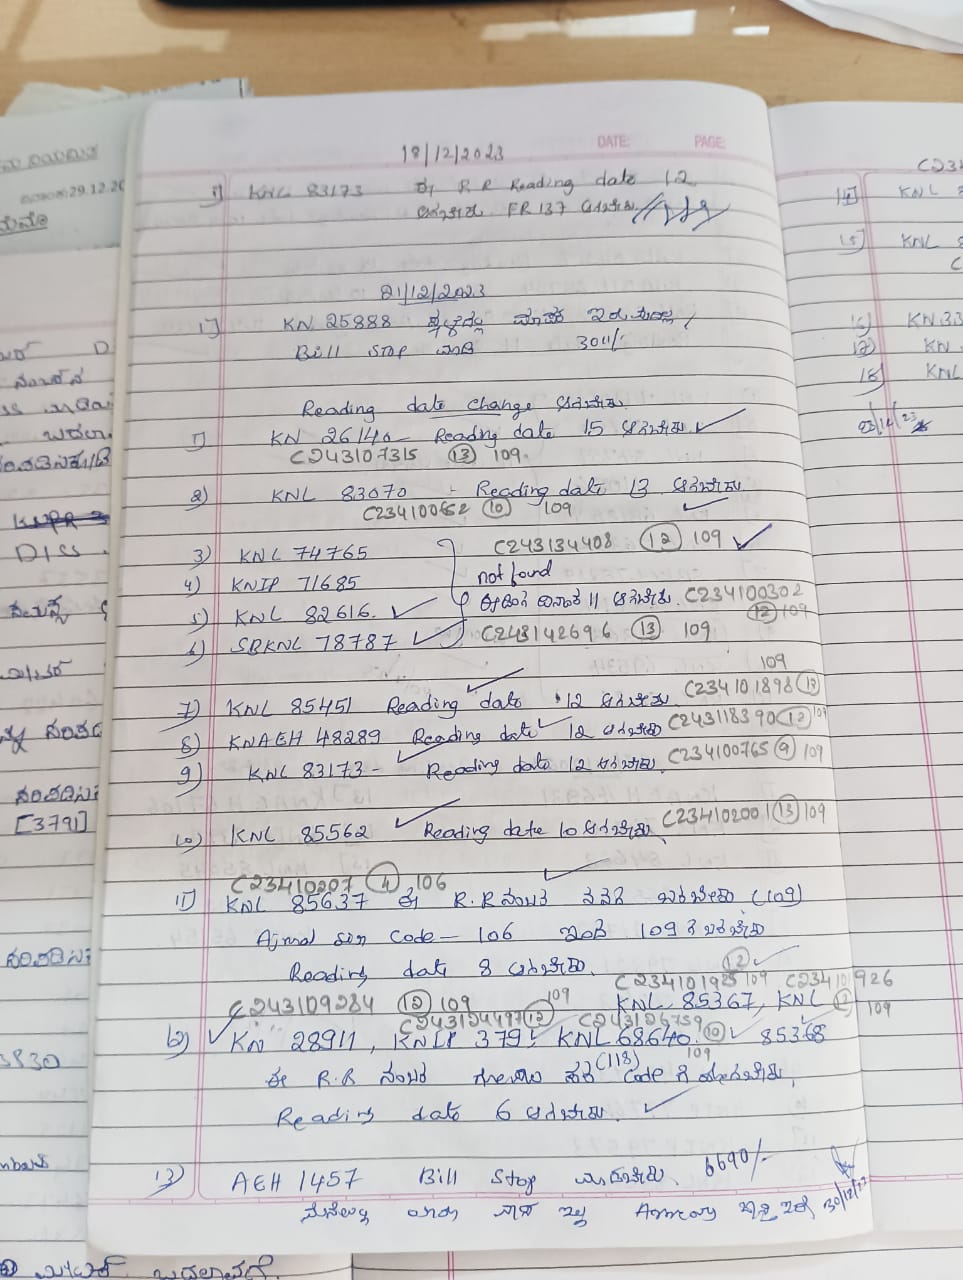 DATE: PAGE:
18/12/2023
1) KNL 83173 ಈ R R Reading date 12
ಆಗಬೇಕು FR 137 ಆಗಬೇಕು
21/12/2023
1) KN 25888 ಸ್ಥಳದಲ್ಲಿ ಮಾಪಕ ಇರುವುದಿಲ್ಲ
Bill Stop ಮಾಡಿ 3011/-
Reading date change ಆಗಬೇಕು
1) KN 26140 - Reading date 15 ಆಗಬೇಕು
C243107315 (13) 109
2) KNL 83070 - Reading date 13 ಆಗಬೇಕು
C234100652 (10) 109
3) KNL 74765 C243134408 (12) 109
4) KNIP 71685 not found
5) KNL 82616. ದಿನಾಂಕ 11 ಆಗಬೇಕು. C234100302
(12) 109
6) SBKNL 78787 C243142696 (13) 109
109
7) KNL 85451 Reading date 12 ಆಗಬೇಕು C234101898 (12)
8) KNAEH 48289 Reading date 12 ಆಗಬೇಕು C243118390 (12) 109
9) KNL 83173 - Reading date 12 ಆಗಬೇಕು C234100765 (9) 109
10) KNL 85562 Reading date 10 ಆಗಬೇಕು C234102001 (13) 109
C23410207 (4) 106
11) KNL 85637 ಈ R.R ನಂಬರ ನನಗೆ ಬರಬೇಕು (109)
Code - 106 ಇದೆ 109 ಗೆ ಬರಬೇಕು
Reading date 8 ಆಗಬೇಕು. (12)
C234101925 109 C234101926
C243109284 (12) 109 KNL 85367, KNL 109
C243124497 (12) 109 C243126759
12) KN 28911, KNIP 379, KNL 68640. (10) 85368
109
ಈ R.R ನಂಬರ (118) Code ಗೆ ಹೋಗಬೇಕು
Reading date 6 ಆಗಬೇಕು.
13) AEH 1457 Bill Stop ಮಾಡಬೇಕು. 6690/-
ಮನೆಯಲ್ಲಿ ಯಾರು ವಾಸ ಇಲ್ಲ ಇದೆ 30/12/23
C234
14) KNL
15) KNL
C
16) KN 33
17) KN
18) KNL
23/12/23
29.12.20
D
[3791]
3830
DISS